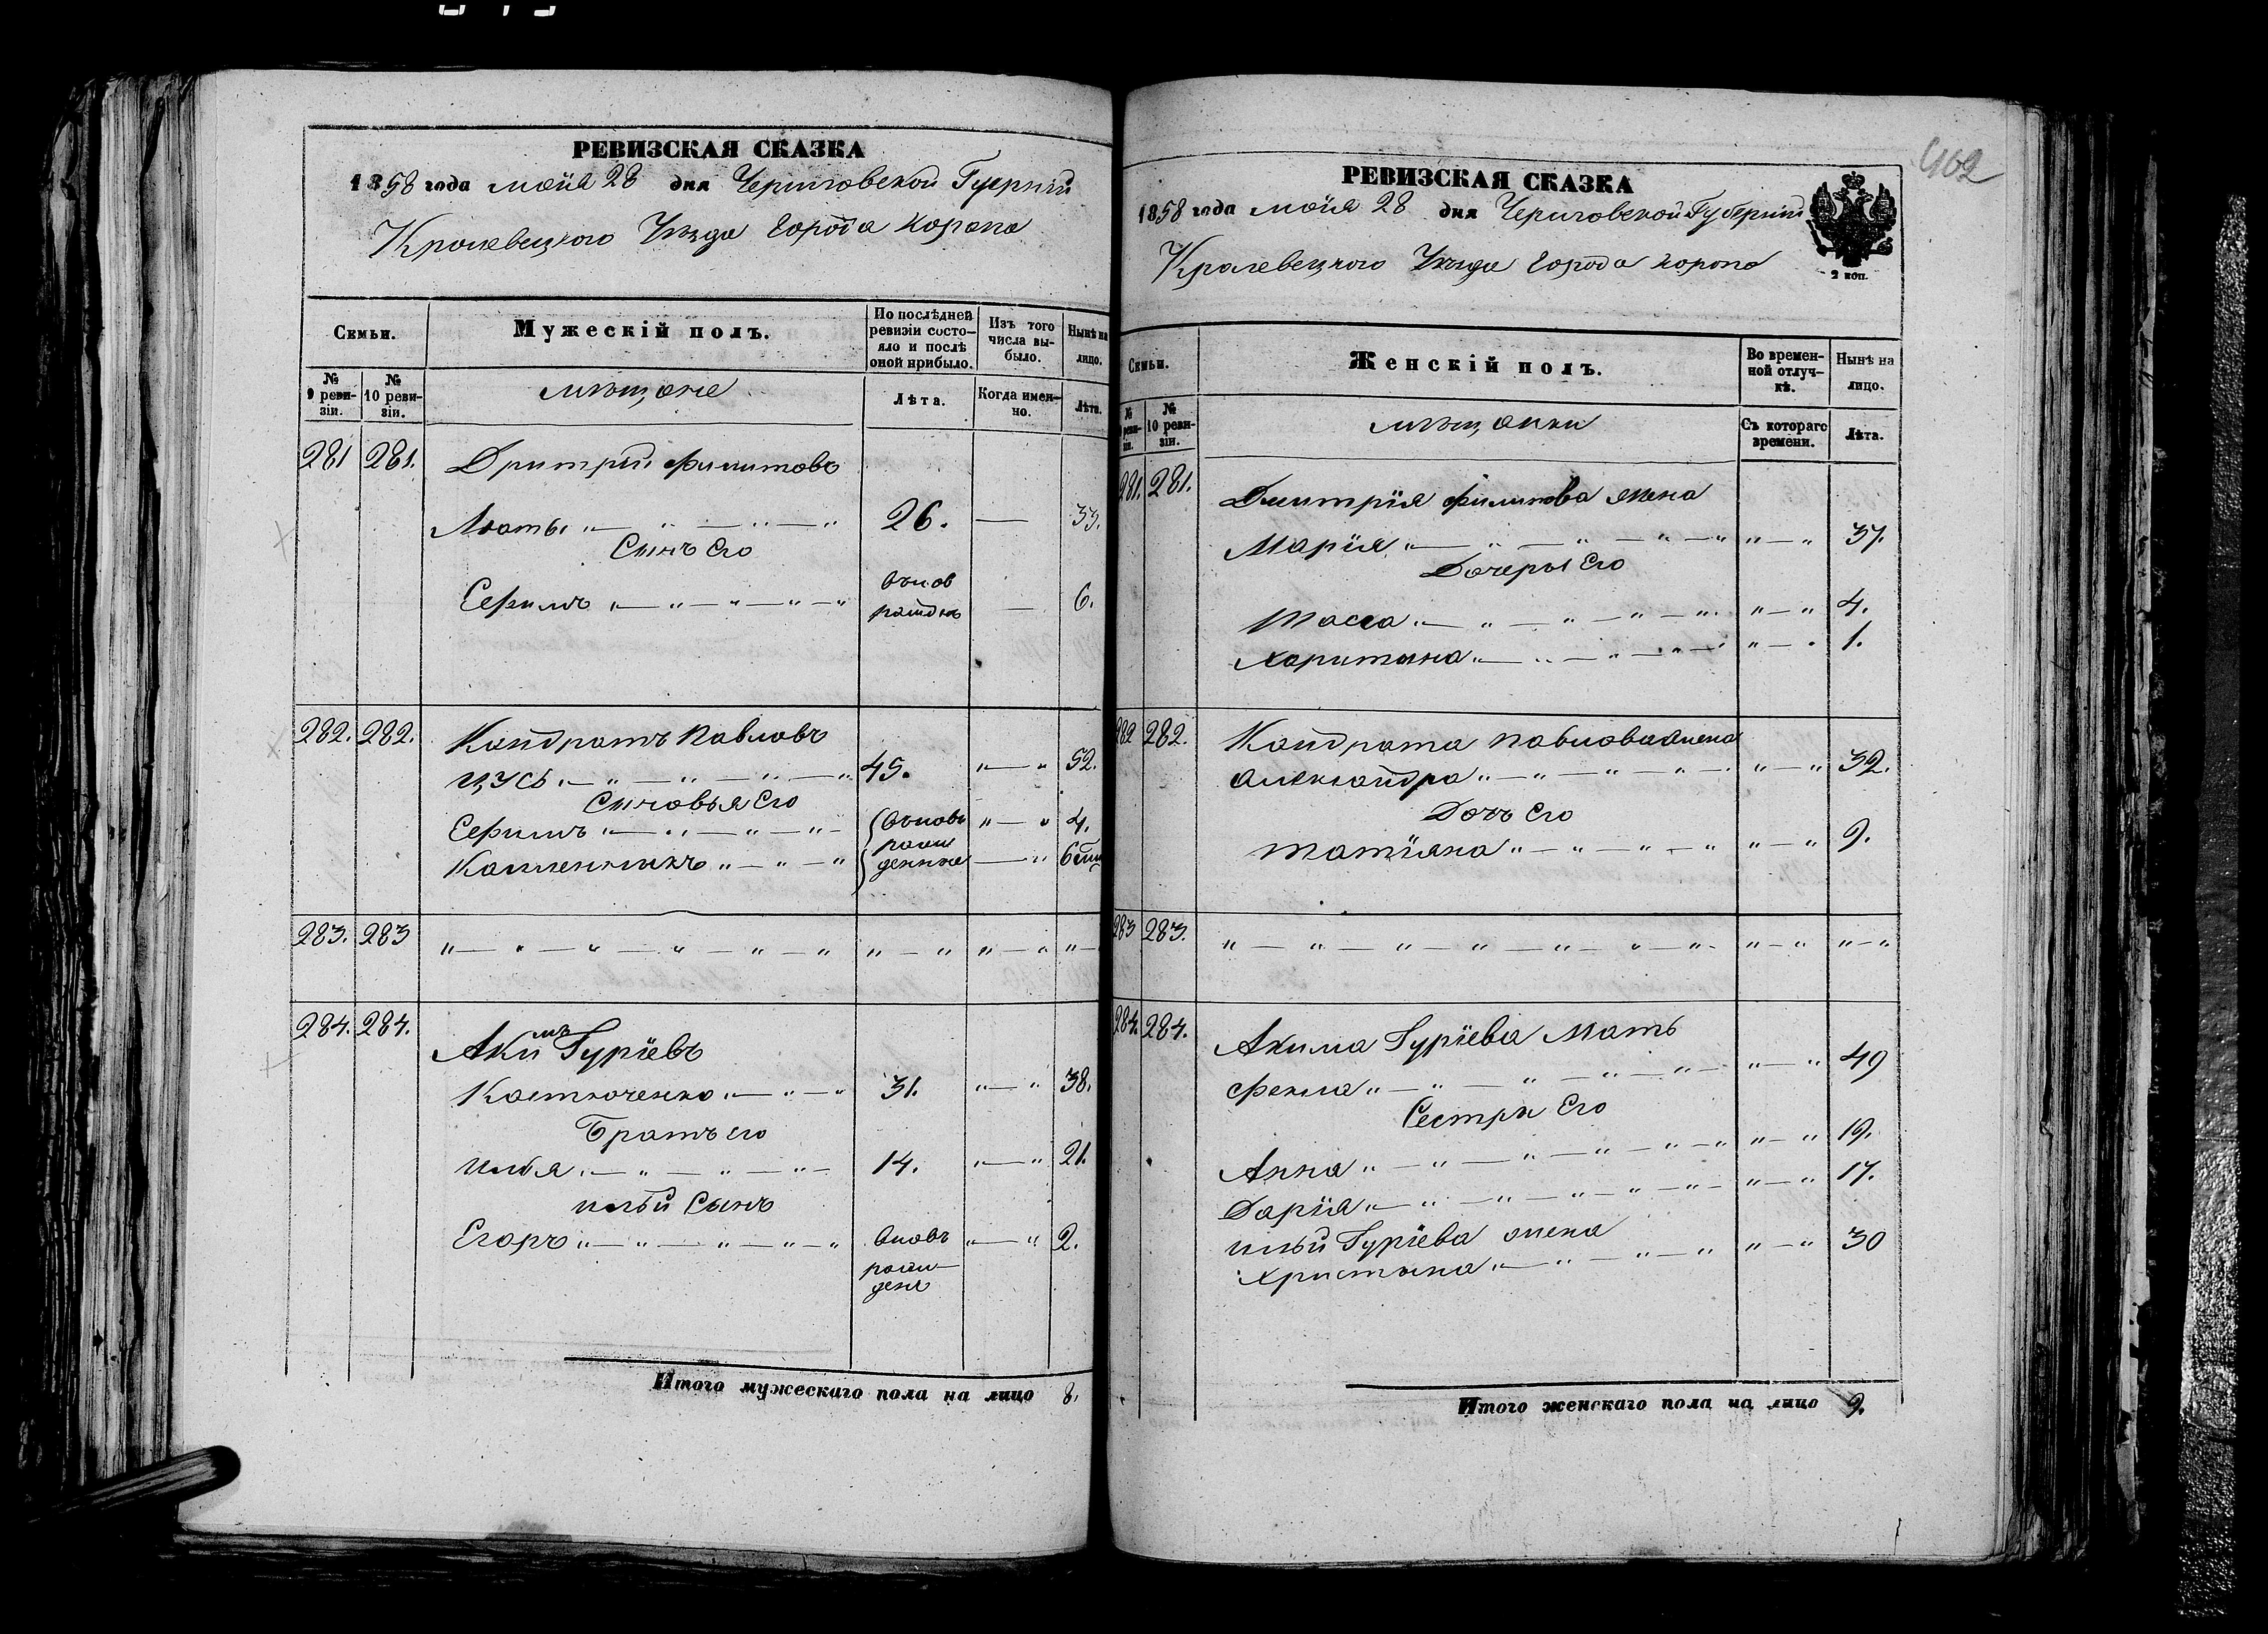 РЕВИЗСКАЯ СКАЗКА
1858 года маія 28 дня Черниговской Губерніи
Кролевецкого Уезда города Коропа
Семьи.
Мужескій полъ.
По послѣдней ревизіи состояло и послѣ оной прибыло.
Изъ того числа выбыло.
Нынѣ на лицо.
№ 9 ревизіи.
№ 10 ревизіи.
мѣщане
Лѣта.
Когда именно.
Лѣта.
281 281. Дмитрій Филитовъ
26. — 33.
Сынъ Его
Ефимъ „—„—„—„—„ вновь рожденъ — 6.
282. 282. Кондратъ Павловъ
Цусь „—„—„—„—„ 45. „—„ 52.
Сыновья Его
Ефимъ „—„—„—„ вновь „—„ 4.
рожденные
—„ 6
283. 283 „—„—„—„—„—„—„ „—„ „—„ „—
284. 284. Акимъ Гуріевъ
Костюченко „—„—„ 31. „—„ 38.
Братъ его
Илья „—„—„—„— 14. „—„ 21.
Ильи Сынъ
Егоръ „—„—„—„—„ вновь „—„ 2.
рожденъ
Итого мужескаго пола на лицо 8.
462
РЕВИЗСКАЯ СКАЗКА
1858 года маія 28 дня Черниговской Губерніи
Кролевецкого Уезда города Коропа
2 коп.
Семьи.
Женскій полъ.
Во временной отлучкѣ.
Нынѣ на лицо.
№ 10 ревизіи.
мѣщанки
Съ котораго времени.
Лѣта.
281. 281. Дмитрія Филитова жена
Марія „—„—„—„—„ „—„ 37.
Дочеры Его
Тасса „—„—„—„—„ „—„ 4.
Харитина „—„—„—„—„ „—„ 1.
282 282. Кондрата Павлова жена
Александра „—„—„—„—„ „—„ 32.
Дочь Его
Татіяна „—„—„—„—„ „—„ 9.
283 283. „—„—„—„—„—„—„— „—„ „—„
284. 284. Акима Гуріева Мать
Фекла „—„—„—„—„—„ „—„ 49
Сестры Его
Анна „—„—„—„—„—„ „—„ 19.
Дарія „—„—„—„—„—„— „—„ 17.
Ильи Гуріева жена
Христина „—„—„—„ „—„ 30
Итого женскаго пола на лицо 9.